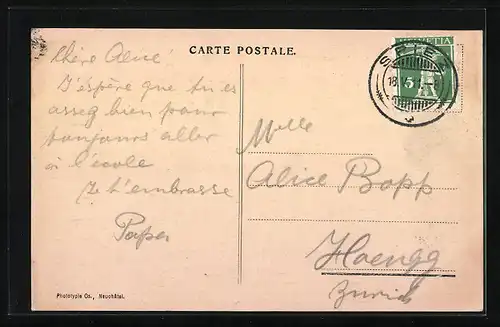 CARTE POSTALE.
HELVETIA
5
Chère Alice
J'espère que tu es
asseg bien pour
toujours aller
à l'école
Je t'embrasse
Papa
Mlle
Alice Bopp
Hoengg
Zurich
Phototypie Co., Neuchâtel.